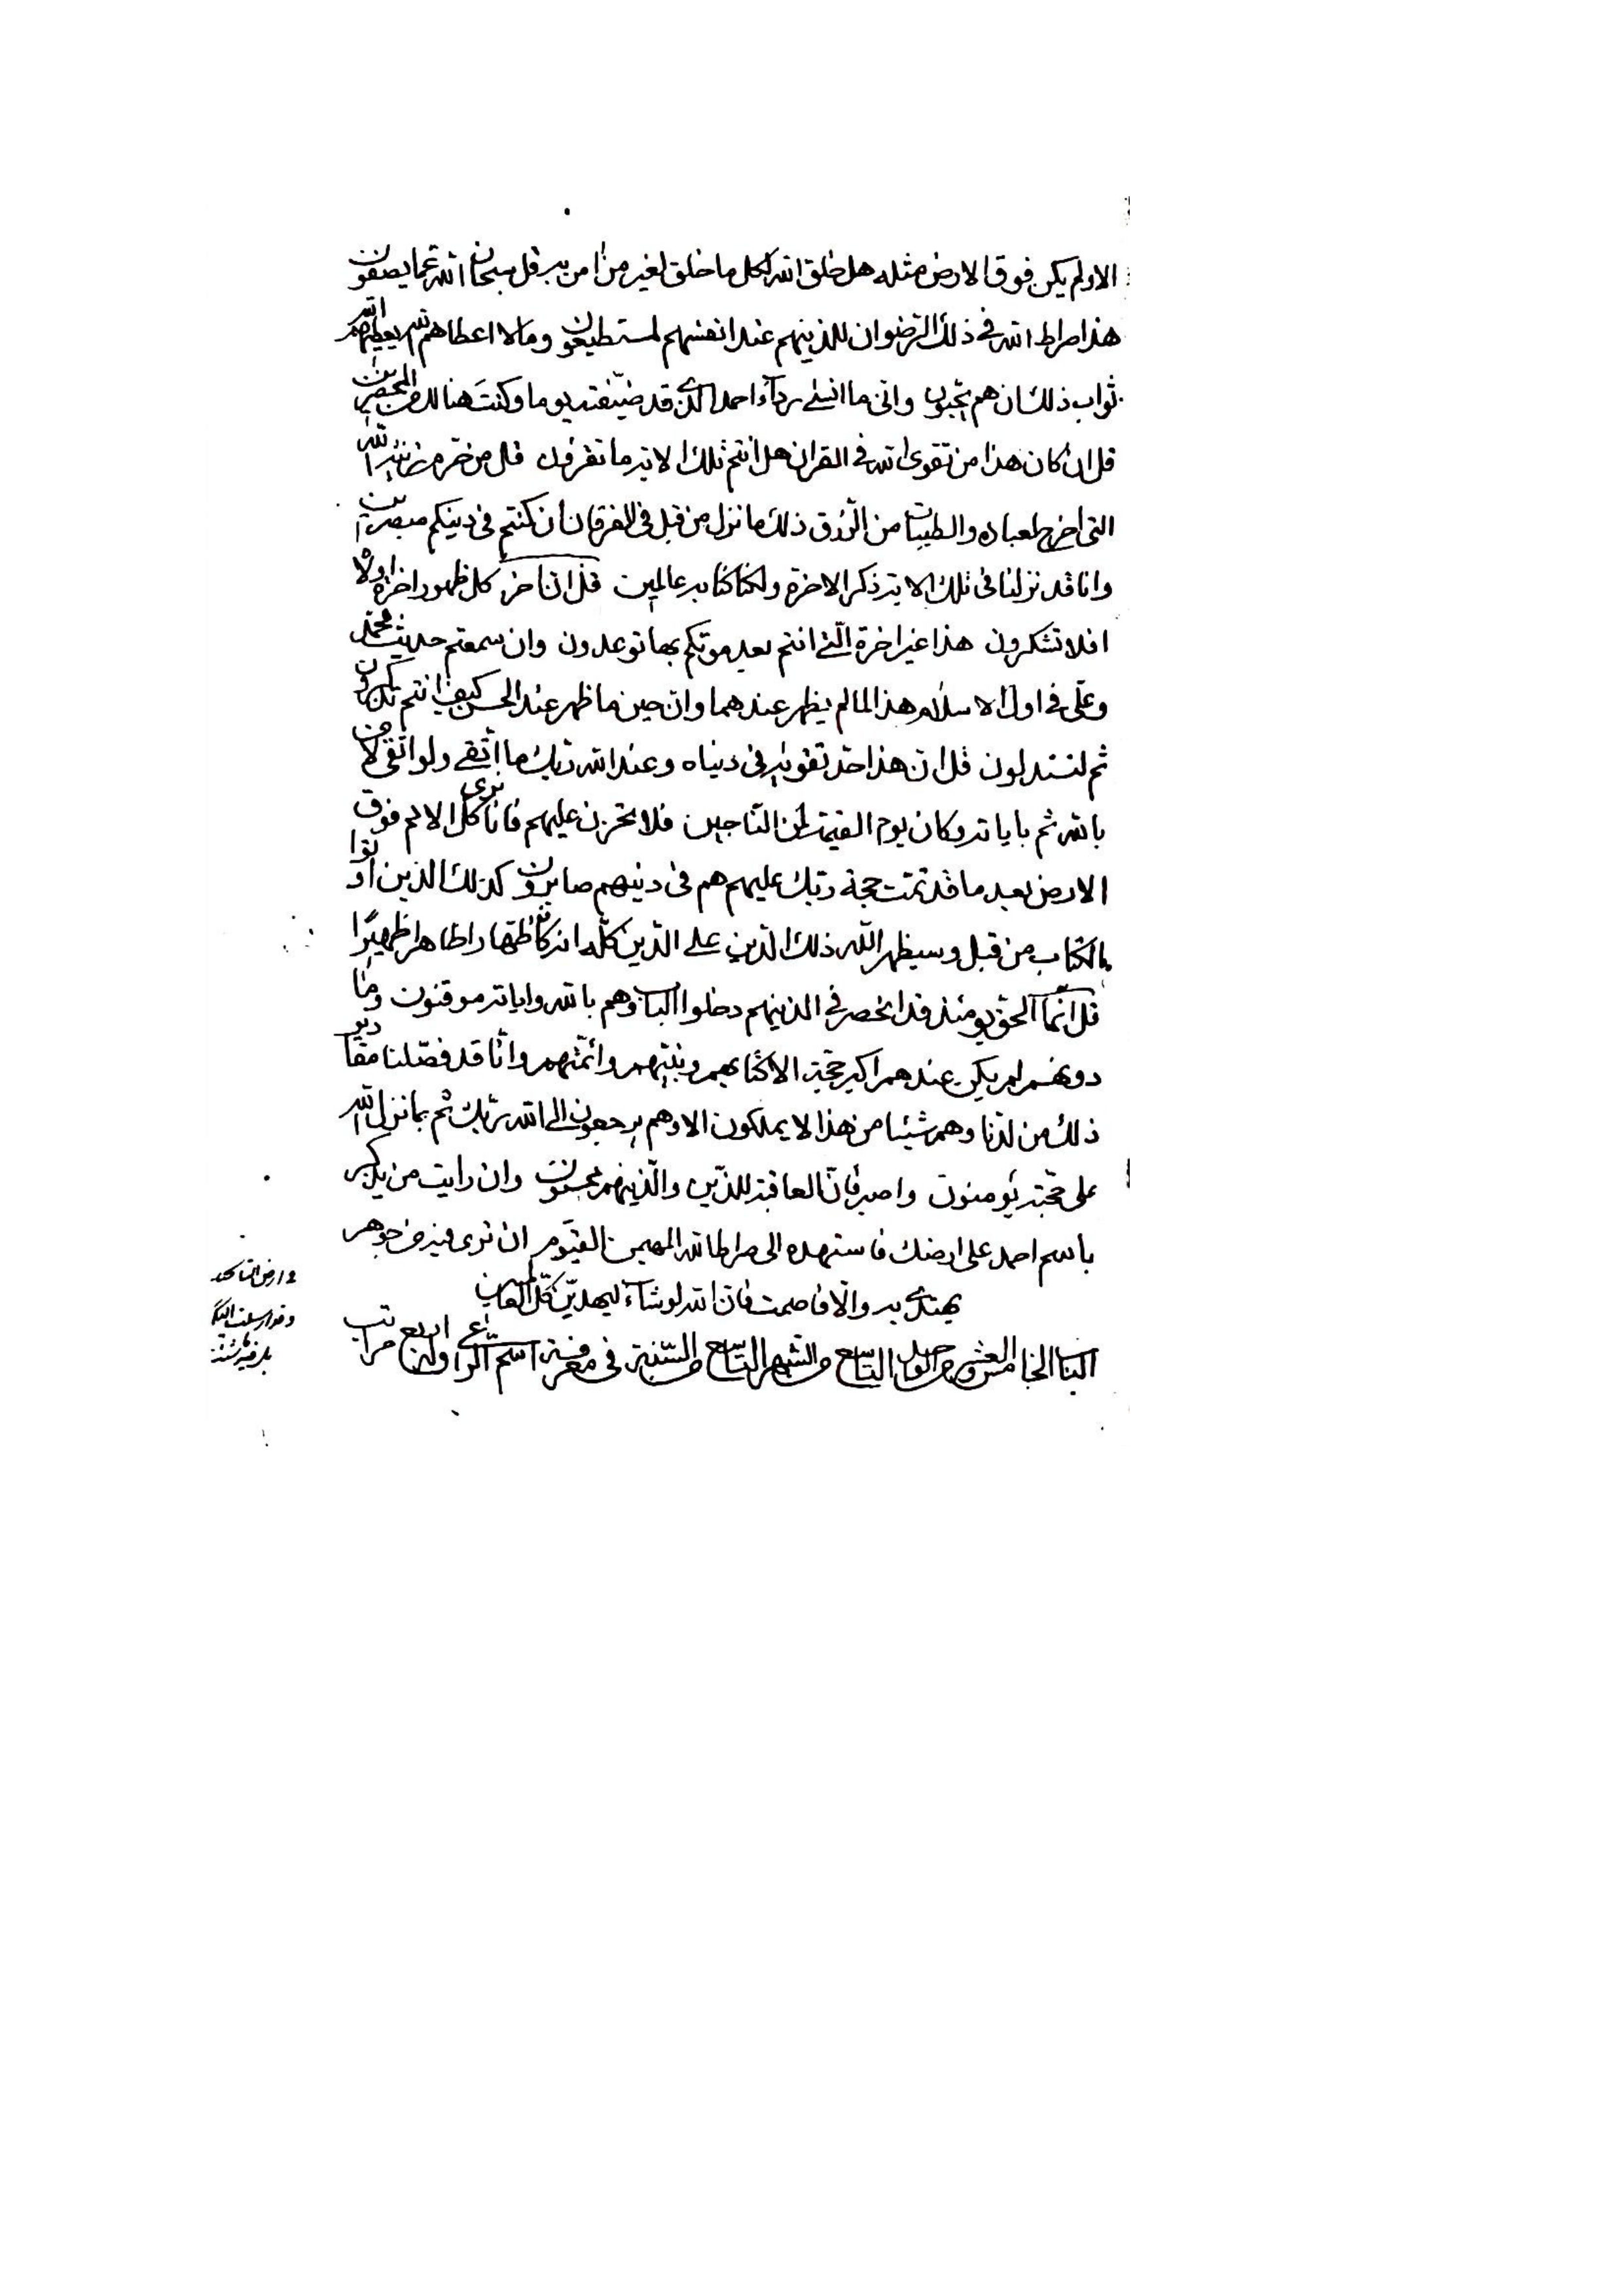 الا ولم يكن فوق الارض مثله هل خلق الله لكل ما خلق لغير من امن به قل سبحان الله عما يصفون
هذا صراط الله في ذلك الرضوان للذينهم عند انفسهم لمستطيعون وما لا اعطاهم الله يعطيهم الله
ثواب ذلك ان هم يحبون وانى ما انسى رداء احمد الذي قد ضيفته يوما وكنت هنالك لمن المحضرين
قل ان كان هذا من تقوى الله في القران هل انتم تلك الاية ما تقرؤن قل من حرم زينة الله
التى اخرج لعباده والطيبات من الرزق ذلك ما نزل من قبل فى الفرقان ان كنتم فى دينكم مبصرين
وانا قد نزلنا فى تلك الاية ذكر الاخرة ولكنا كنا به عالمين قل ان اخر كل ظهور اخرة اولا
افلا تشكرون هذا غير اخرة التي انتم بعد موتكم بها توعدون وان سمعتم حديث محمد
وعلى في اول الاسلام هذا لما لم يظهر عندهما وان حين ما ظهر عند الحسن كيف انتم تذكرون
ثم لتستدلون قل ان هذا حد تقويه فى دنياه وعند الله ربك ما اتقي ولو اتقى لامن
بالله ثم باياته وكان يوم القيمة لمن الناجين فلا تحزن عليهم فانا نرى كل الامم فوق
الارض بعد ما قد تمت حجة ربك عليهم هم فى دينهم صابرون كذلك الذين اوتوا
الكتاب من قبل وسيظهر الله ذلك الدين على الدين كله انه كان ظهارا ظاهرا ظهيرا
قل انما الحق يومئذ قد انحصر في الذينهم دخلوا الباب وهم بالله واياته موقنون وما
دونهم لم يكن عندهم اكبر حجة الا كتابهم ونبيهم وائمتهم وانا قد فصلنا مقادير
ذلك من لدنا وهم شيئا من هذا لا يملكون الا وهم يرجعون الى الله ربك ثم بما نزل الله
على حجته يؤمنون واصبر فان العاقبة للدين والذينهم محسنون وان رايت من يذكر
باسم احمد على ارضك فاستهده الى صراط الله المهيمن القيوم ان ترى فيه من جوهر
يهتدي به والا فاصمت فان الله لو شاء ليهدين كل العالمين
الباب الخامس والعشر من الواحد التاسع من الشهر التاسع من السنة فى معرفة اسم الراعي وله اربع مراتب